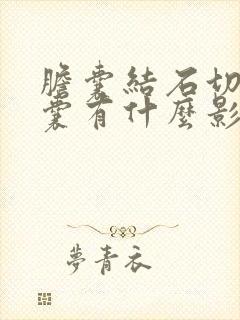 膽囊結石切
囊有什麼影
夢青衣